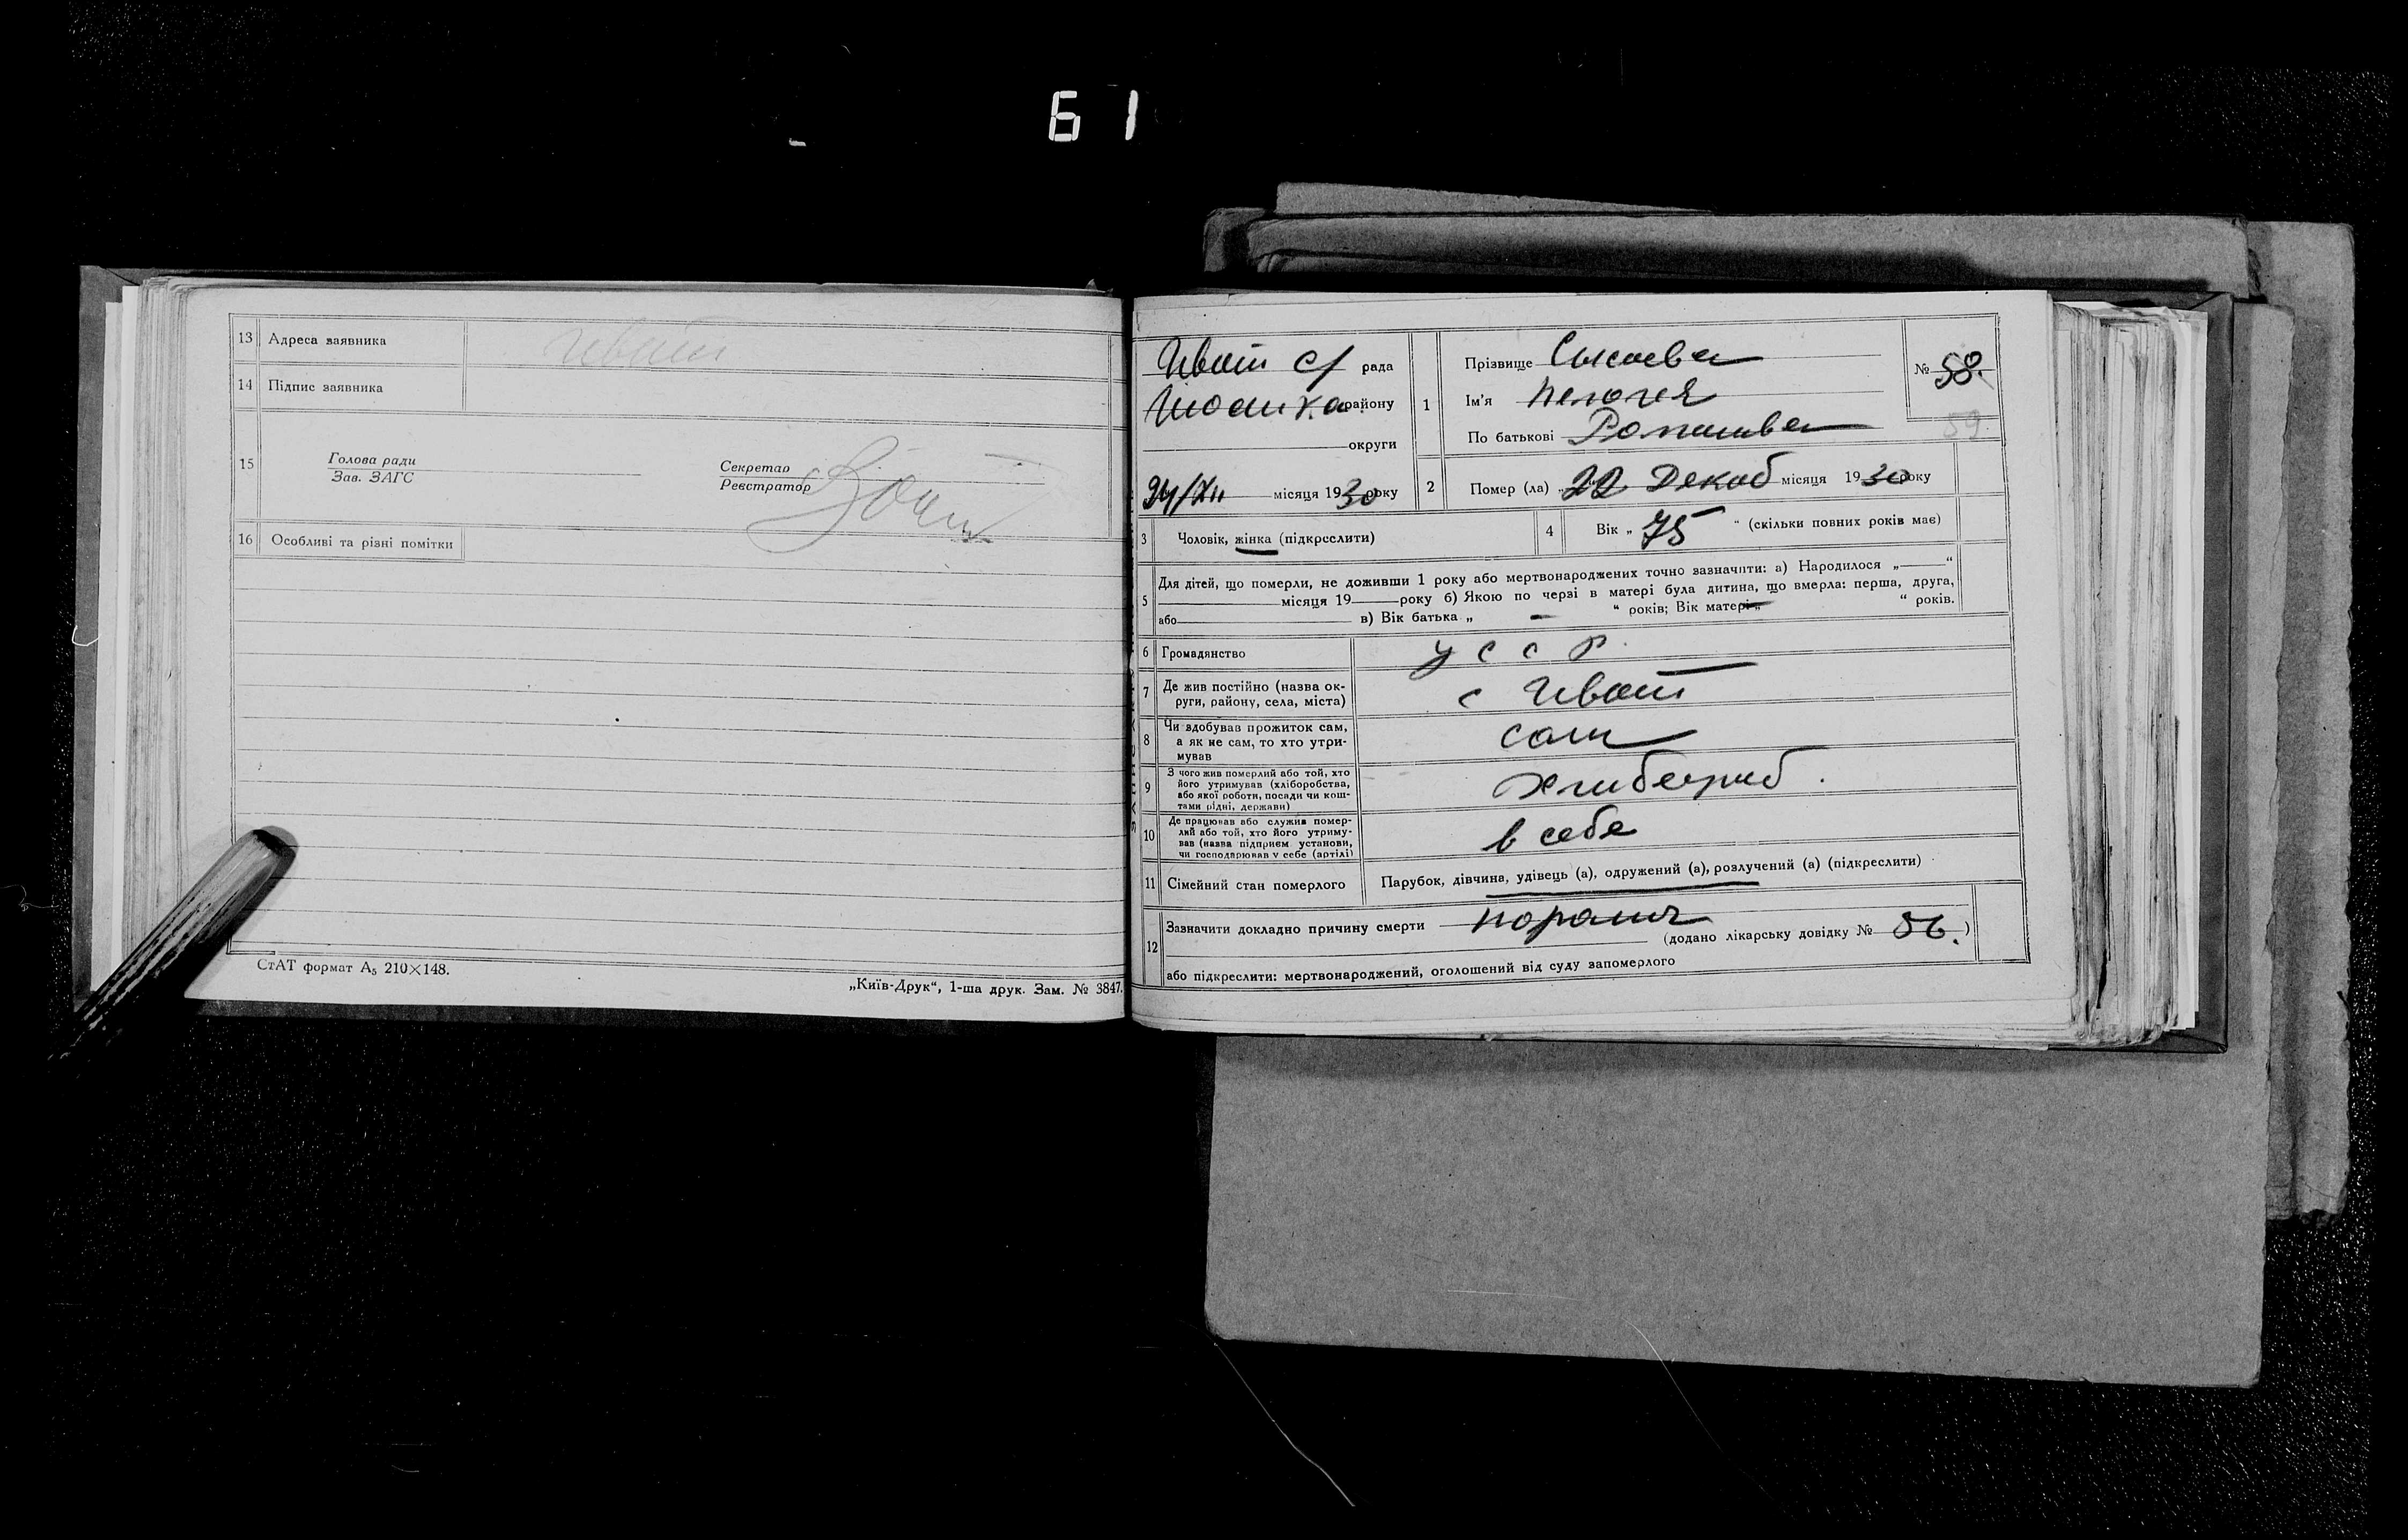 61
13 Адреса заявника Ивот
14 Підпис заявника
15 Голова ради
Зав. ЗАГС
Секретар
Реєстратор
16 Особливі та різні помітки
СтАТ формат А₅ 210×148.
„Київ-Друк“, 1-ша друк. Зам. № 3847.
Ивот С/ рада
району
округи
24/XII місяця 1930 року
1 Прізвище Сысоева
Ім'я Пелогея
По батькові Романовна
№ 58.
59
2 Помер (ла) „22 Декаб місяця 1930 року
3 Чоловік, жінка (підкреслити)
4 Вік „ 75 “ (скільки повних років має)
5 Для дітей, що померли, не доживши 1 року або мертвонароджених точно зазначити: а) Народилося „ “
місяця 19 року б) Якою по черзі в матері була дитина, що вмерла: перша, друга,
або в) Вік батька „ - “ років; Вік матері „ - “ років.
6 Громадянство У С С Р
7 Де жив постійно (назва ок-
руги, району, села, міста) с Ивот
8 Чи здобував прожиток сам,
а як не сам, то хто утри-
мував сам
9 З чого жив померлий або той, хто
його утримував (хліборобства,
або якої роботи, посади чи кош-
тами рідні, держави) хлибороб.
10 Де працював або служив помер-
лий або той, хто його утриму-
вав (назва підприєм установи,
чи господарював у себе (артілі) в себе
11 Сімейний стан померлого Парубок, дівчина, удівець (а), одружений (а), розлучений (а) (підкреслити)
12 Зазначити докладно причину смерти
(додано лікарську довідку № 56.)
або підкреслити: мертвонароджений, оголошений від суду запомерлого